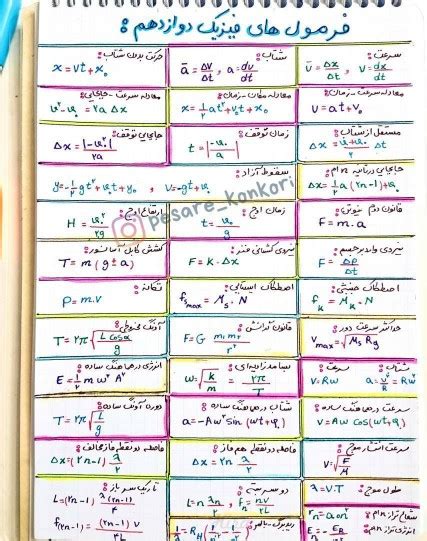 فرمول های فیزیک دوازدهم :
سرعت :
v̄ = Δx/Δt , v = dx/dt
شتاب :
ā = ΔV/Δt , a = dv/dt
حرکت بدون شتاب :
x = vt + x₀
معادله سرعت - زمان :
v = at + v₀
معادله مکان - زمان :
x = ½at² + v₀t + x₀
معادله سرعت - جابجایی :
v² - v₀² = 2aΔx
مستقل از شتاب :
Δx = (v + v₀)/2 Δt
زمان توقف :
t = |-v₀/a|
جابجایی توقف :
Δx = |-v₀²|/2a
جابجایی در ثانیه n ام
Δx = ½a(2n-1) + v₀
سقوط آزاد :
y = -½gt² + v₀t + y₀ , v = -gt + v₀
قانون دوم نیوتون :
F = m.a
زمان اوج :
t = v₀/g
ارتفاع اوج :
H = v₀²/2g
pesare_konkori
نیروی وارد بر جسم :
F = ΔP/Δt
نیروی کشسانی فنر :
F = K.Δx
کشش کابل آسانسور :
T = m(g ± a)
اصطکاک جنبشی :
f_k = μ_k . N
اصطکاک ایستایی :
f_s max = μ_s . N
تکانه :
P = m.v
حداکثر سرعت دور :
V_max = √(μ_s Rg)
قانون گرانش :
F = G m₁m₂/r²
آونگ مخروطی :
T = 2π√(L cosα/g)
سرعت :
V = Rw
شتاب :
a = v²/R = Rw²
بسامد زاویه ای :
w = √(k/m) = 2π/T
انرژی در هماهنگ ساده :
E = ½mw²A²
سرعت در هماهنگ ساده :
V = Aw cos(wt+φ)
شتاب در هماهنگ ساده :
a = -Aw² sin(wt+φ)
دوره آونگ ساده :
T = 2π√(L/g)
سرعت انتشار موج :
V = √(F/μ)
فاصله دو نقطه هم فاز :
Δx = 2n λ/2
فاصله دو نقطه مخالف :
Δx = (2n-1) λ/2
طول موج :
λ = V.T
دو سر بسته :
L = n λ/2 , f_n = nv/2L
تار یک سر باز :
L = (2n-1) λ/4
f(2n-1) = (2n-1)V/4L
شعاع تراز n ام :
r_n = a₀n²
انرژی تراز n ام :
ریدبرگ - بالمر :